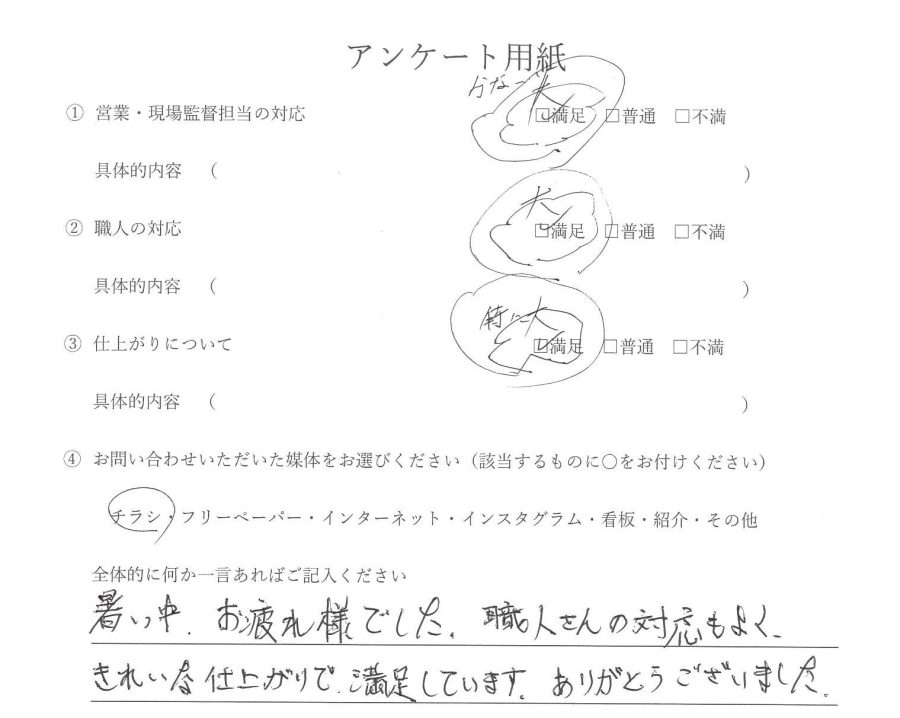 アンケート用紙
① 営業・現場監督担当の対応 大 □満足 □普通 □不満
具体的内容 ( )
② 職人の対応 大 □満足 □普通 □不満
具体的内容 ( )
③ 仕上がりについて 特に大 □満足 □普通 □不満
具体的内容 ( )
④ お問い合わせいただいた媒体をお選びください（該当するものに○をお付けください）
チラシ・フリーペーパー・インターネット・インスタグラム・看板・紹介・その他
全体的に何か一言あればご記入ください
暑い中、お疲れ様でした。職人さんの対応もよく、
きれいな仕上がりで、満足しています。ありがとうございました。